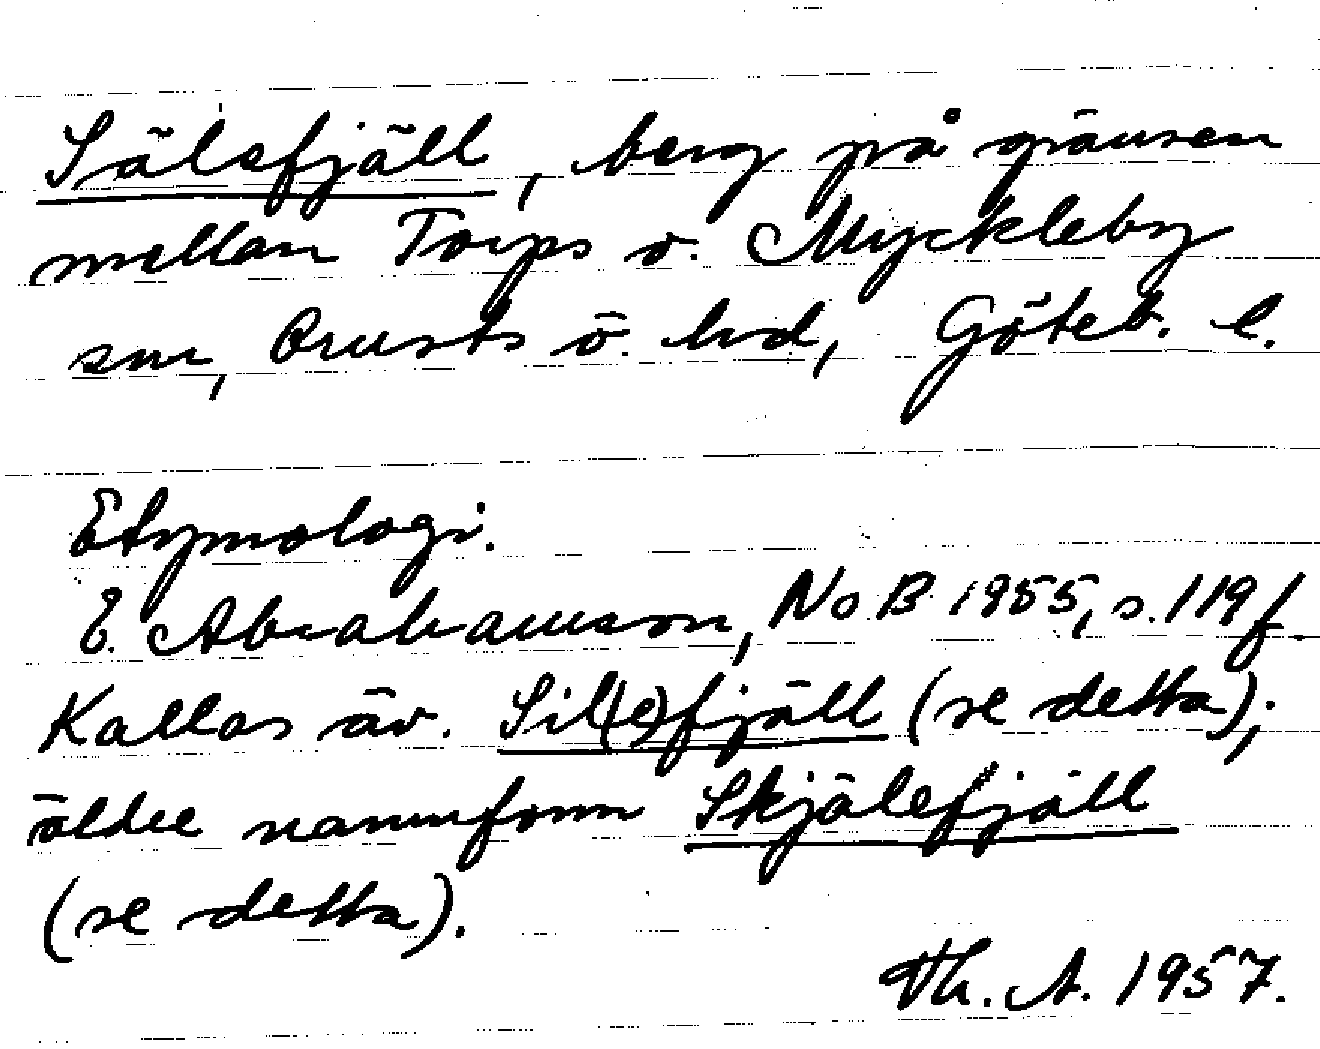 Sälefjäll, berg på gränsen
mellan Torps o. Myckleby
snr, Orusts ö. hd, Göteb. l.
Etymologi.
E. Abrahamson, NoB 1955, s. 119 f.
Kallas äv. Sil(e)fjäll (se detta);
äldre namnform Skjälefjäll
(se detta).
Th. A. 1957.